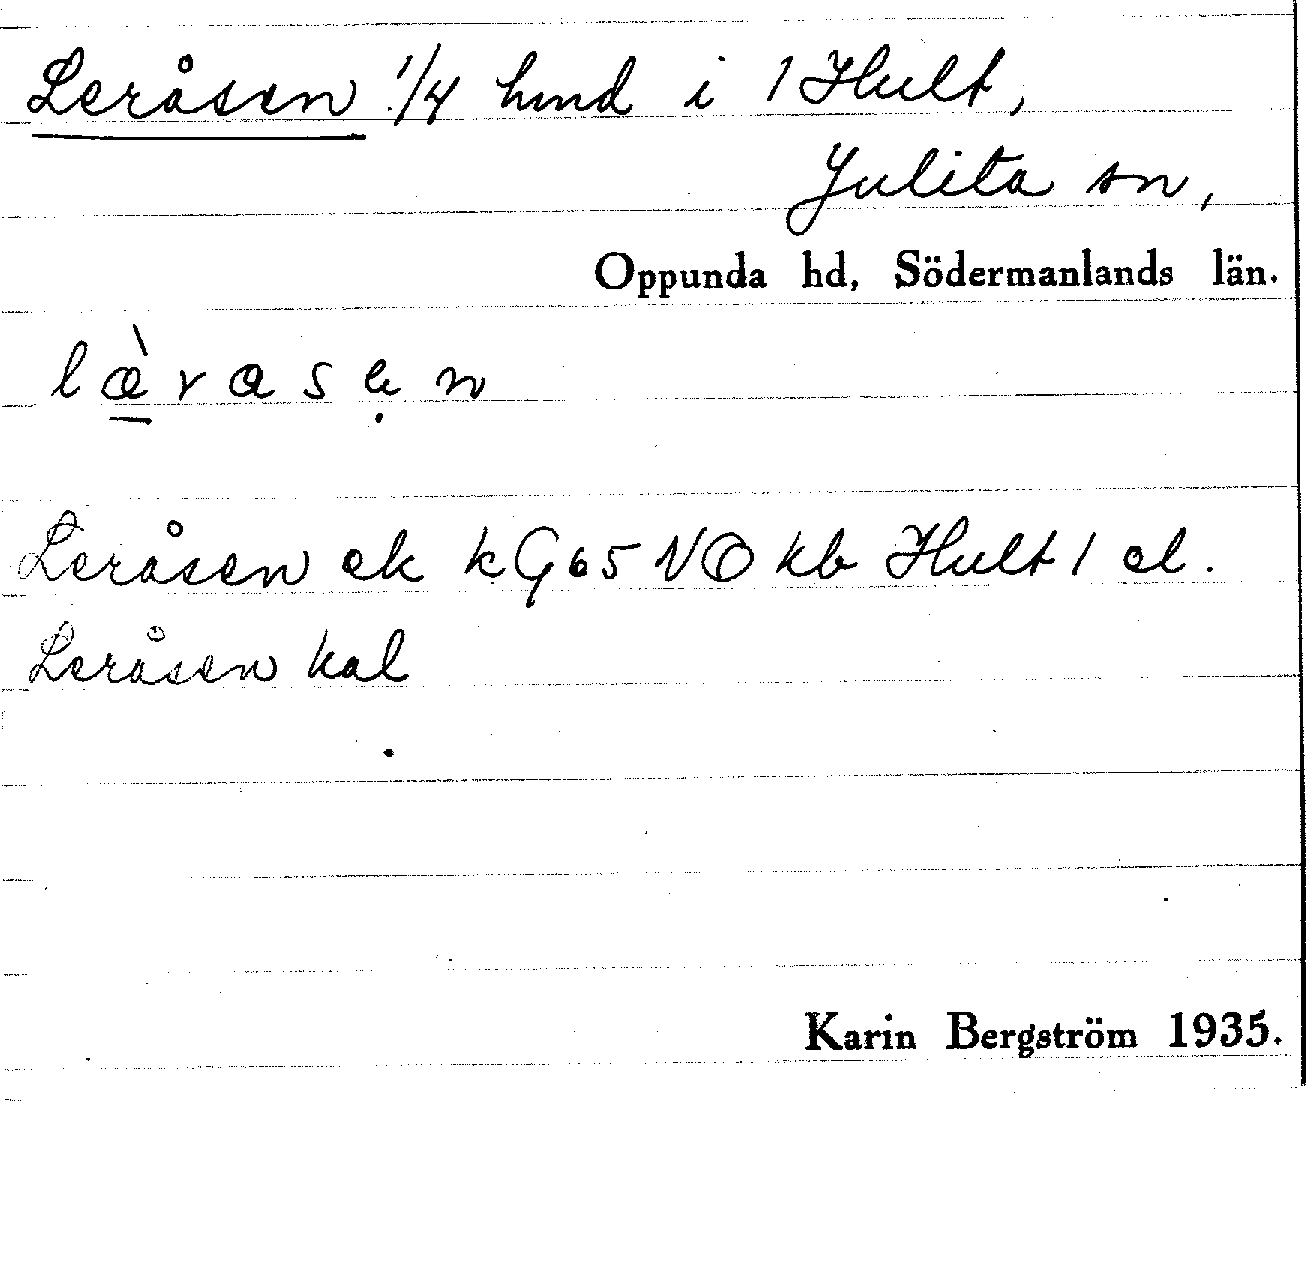 Leråsen 1/4 hmd i 1 Hult,
Julita sn,
Oppunda hd, Södermanlands län.
læ̠̀rasẹn
Leråsen ek kG65 NO kb Hult 1 el.
Leråsen kal
Karin Bergström 1935.